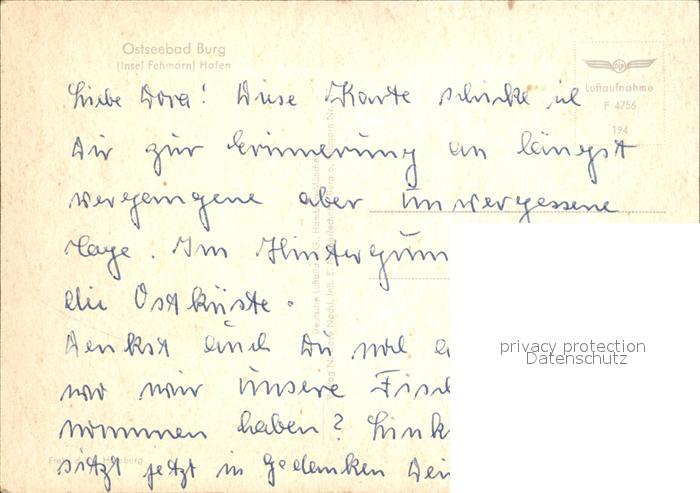 Ostseebad Burg
(Insel Fehmarn) Hafen
Luftaufnahme
F 4756
194
Liebe Dora! Diese Karte schicke ich
Dir zur Erinnerung an längst
vergangene aber unvergessene
Tage. Im Hintergrun
die Ostküste.
Denkst auch Du mal
wo wir unsere Fisch
nommen haben? Links
sitzt jetzt in Gedanken Dein
privacy protection
Datenschutz